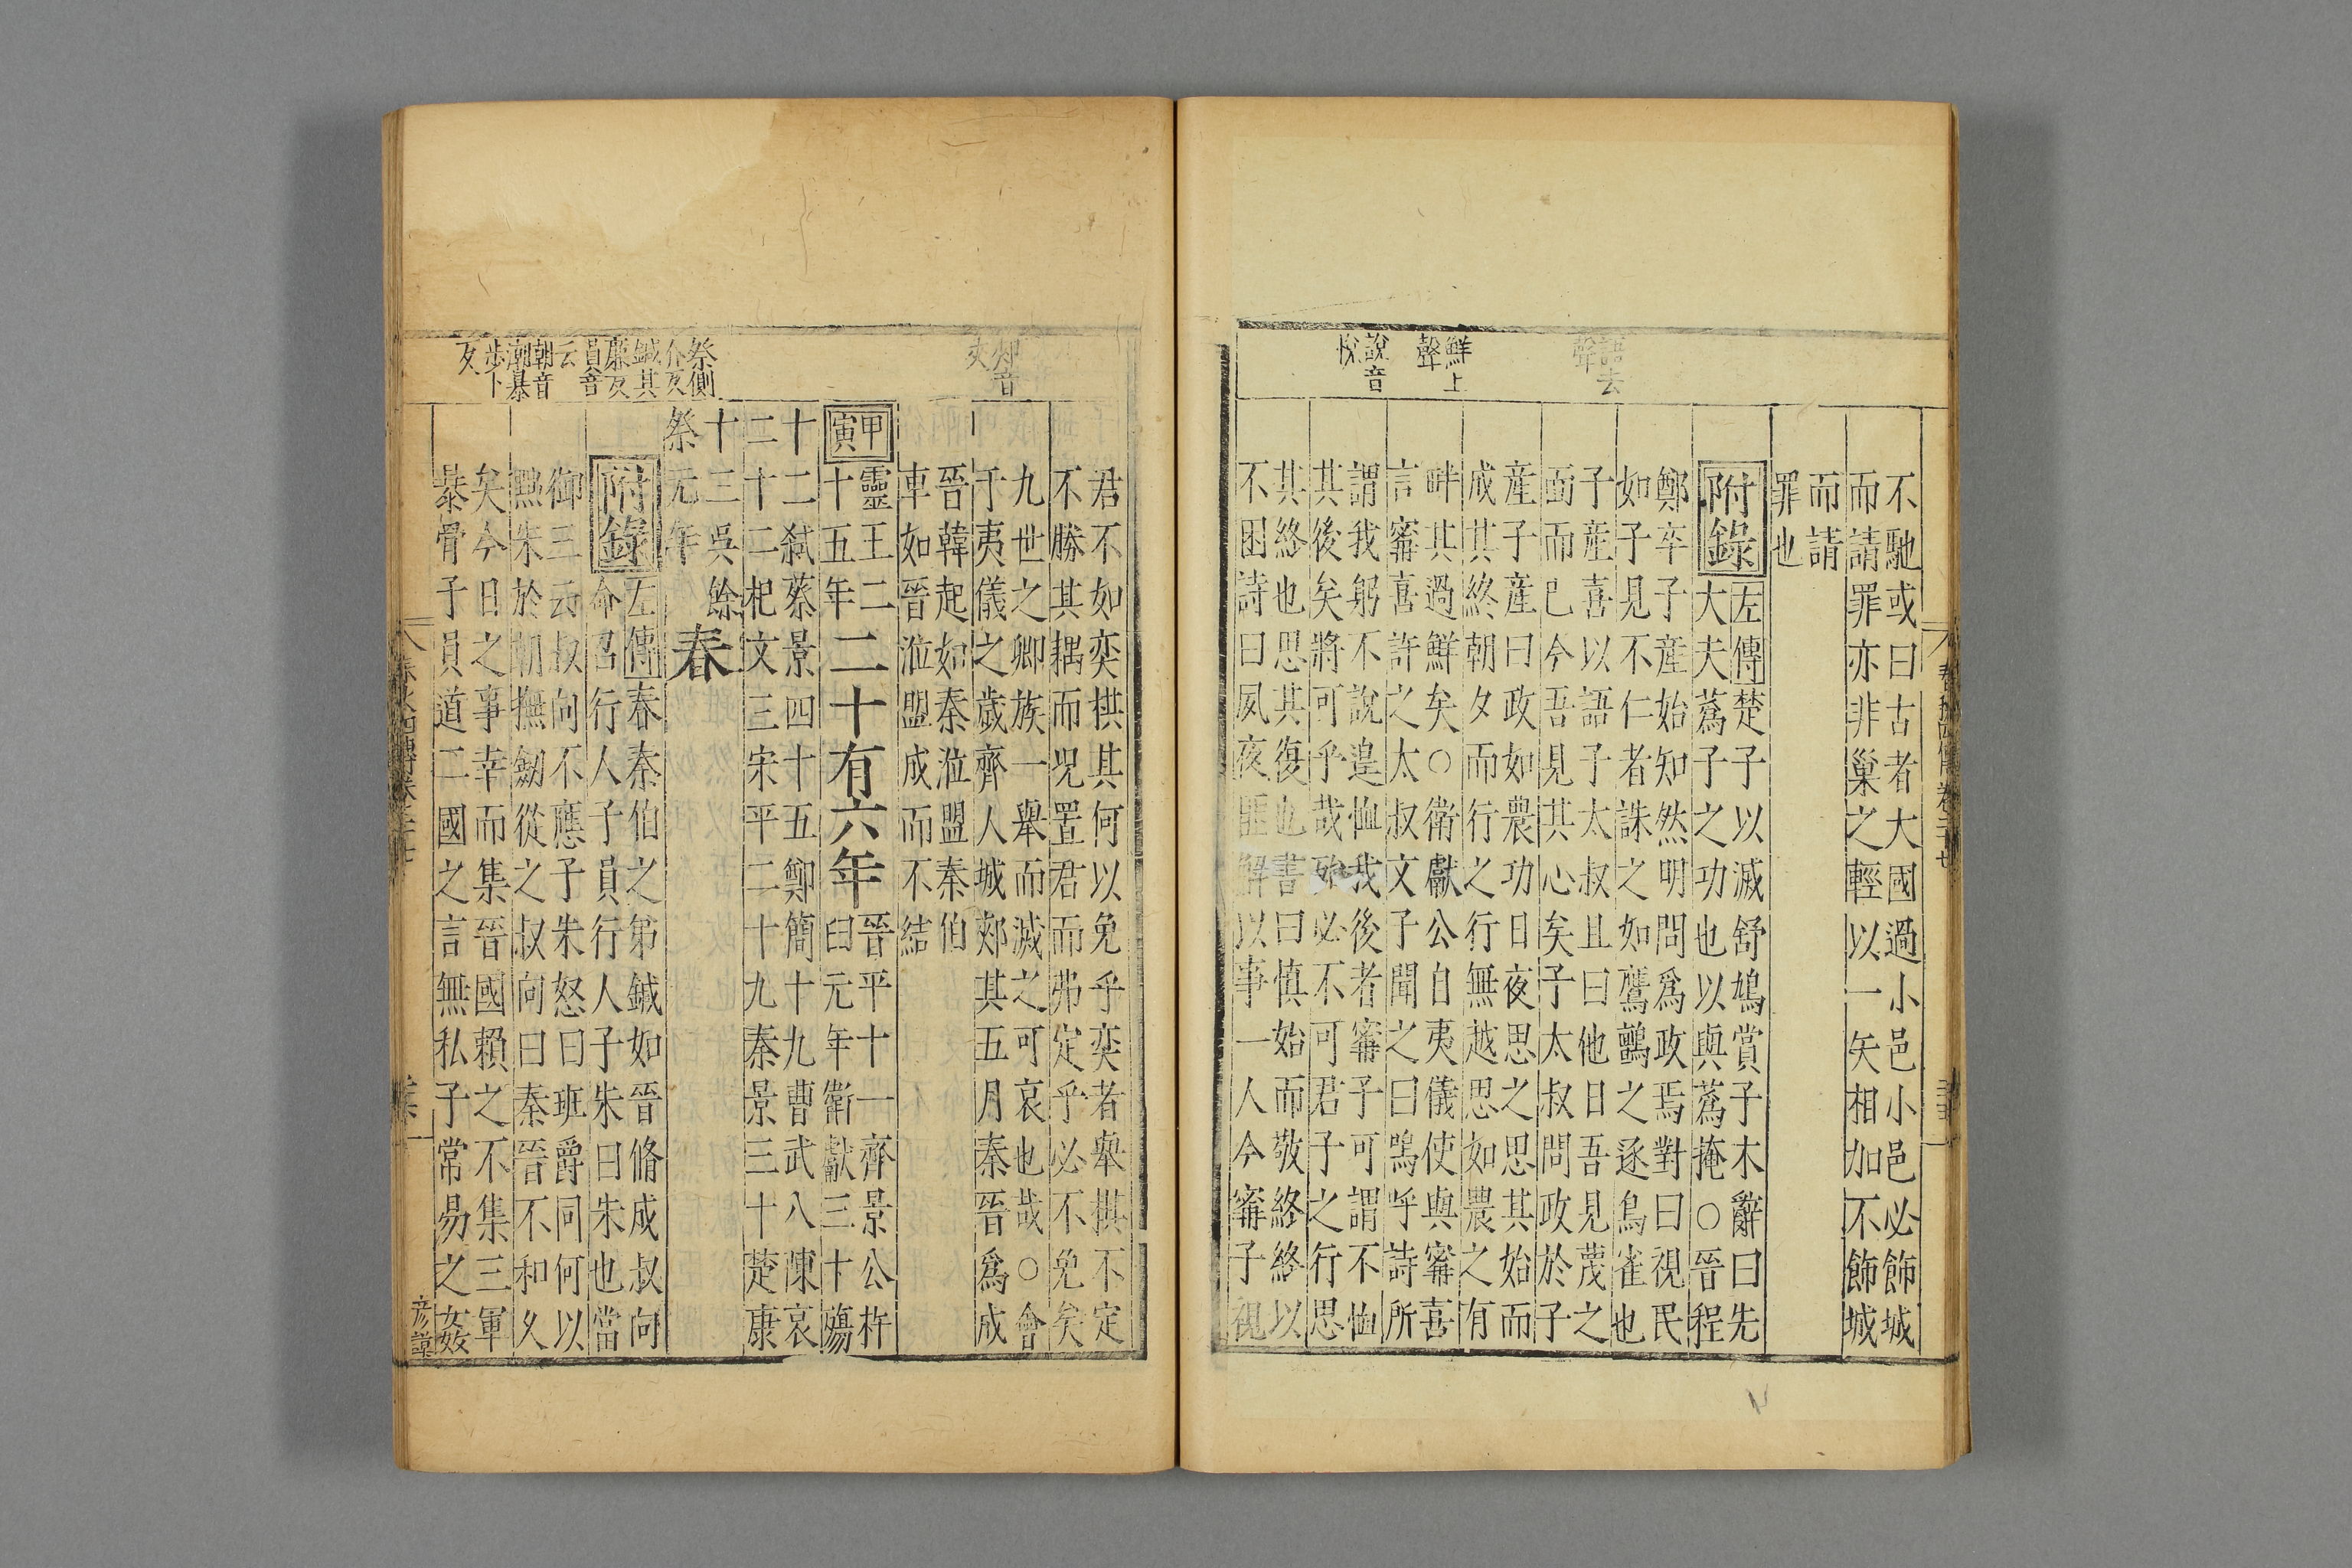 語去
聲
鮮上
聲
說音
悅
不馳或曰古者大國過小邑小邑必飾城
而請罪亦非巢之輕以一矢相加不飾城
而請
罪也
附錄
左傳楚子以滅舒鳩賞子木辭曰先
大夫蒍子之功也以與蒍掩○晉程
鄭卒子產始知然明問爲政焉對曰視民
如子見不仁者誅之如鷹鸇之逐鳥雀也
子產喜以語子太叔且曰他日吾見蔑之
面而已今吾見其心矣子太叔問政於子
產子產曰政如農功日夜思之思其始而
成其終朝夕而行之行無越思如農之有
畔其過鮮矣○衛獻公自夷儀使與甯喜
言甯喜許之太叔文子聞之曰嗚呼詩所
謂我躬不說遑恤我後者甯子可謂不恤
其後矣將可乎哉殆必不可君子之行思
其終也思其復也書曰愼始而敬終終以
不困詩曰夙夜匪解以事一人今甯子視
郟音
夾
祭側
介反
鍼其
廉反
員音
云
朝音
潮暴
步卜
反
君不如奕棋其何以免乎奕者舉棋不定
不勝其耦而況置君而弗定乎必不免矣
九世之卿族一舉而滅之可哀也哉○會
于夷儀之歲齊人城郟其五月秦晉爲成
晉韓起如秦涖盟秦伯
車如晉涖盟成而不結
甲寅
靈王二
十五年
二十有六年
晉平十一齊景公杵
臼元年衛獻三十殤
十二弒蔡景四十五鄭簡十九曹武八陳哀
二十二杞文三宋平二十九秦景三十楚康
十三吳餘
祭元年
春
附錄
左傳春秦伯之弟鍼如晉脩成叔向
命召行人子員行人子朱曰朱也當
御三云叔向不應子朱怒曰班爵同何以
黜朱於朝撫劒從之叔向曰秦晉不和久
矣今日之事幸而集晉國賴之不集三軍
暴骨子員道二國之言無私子常易之姦